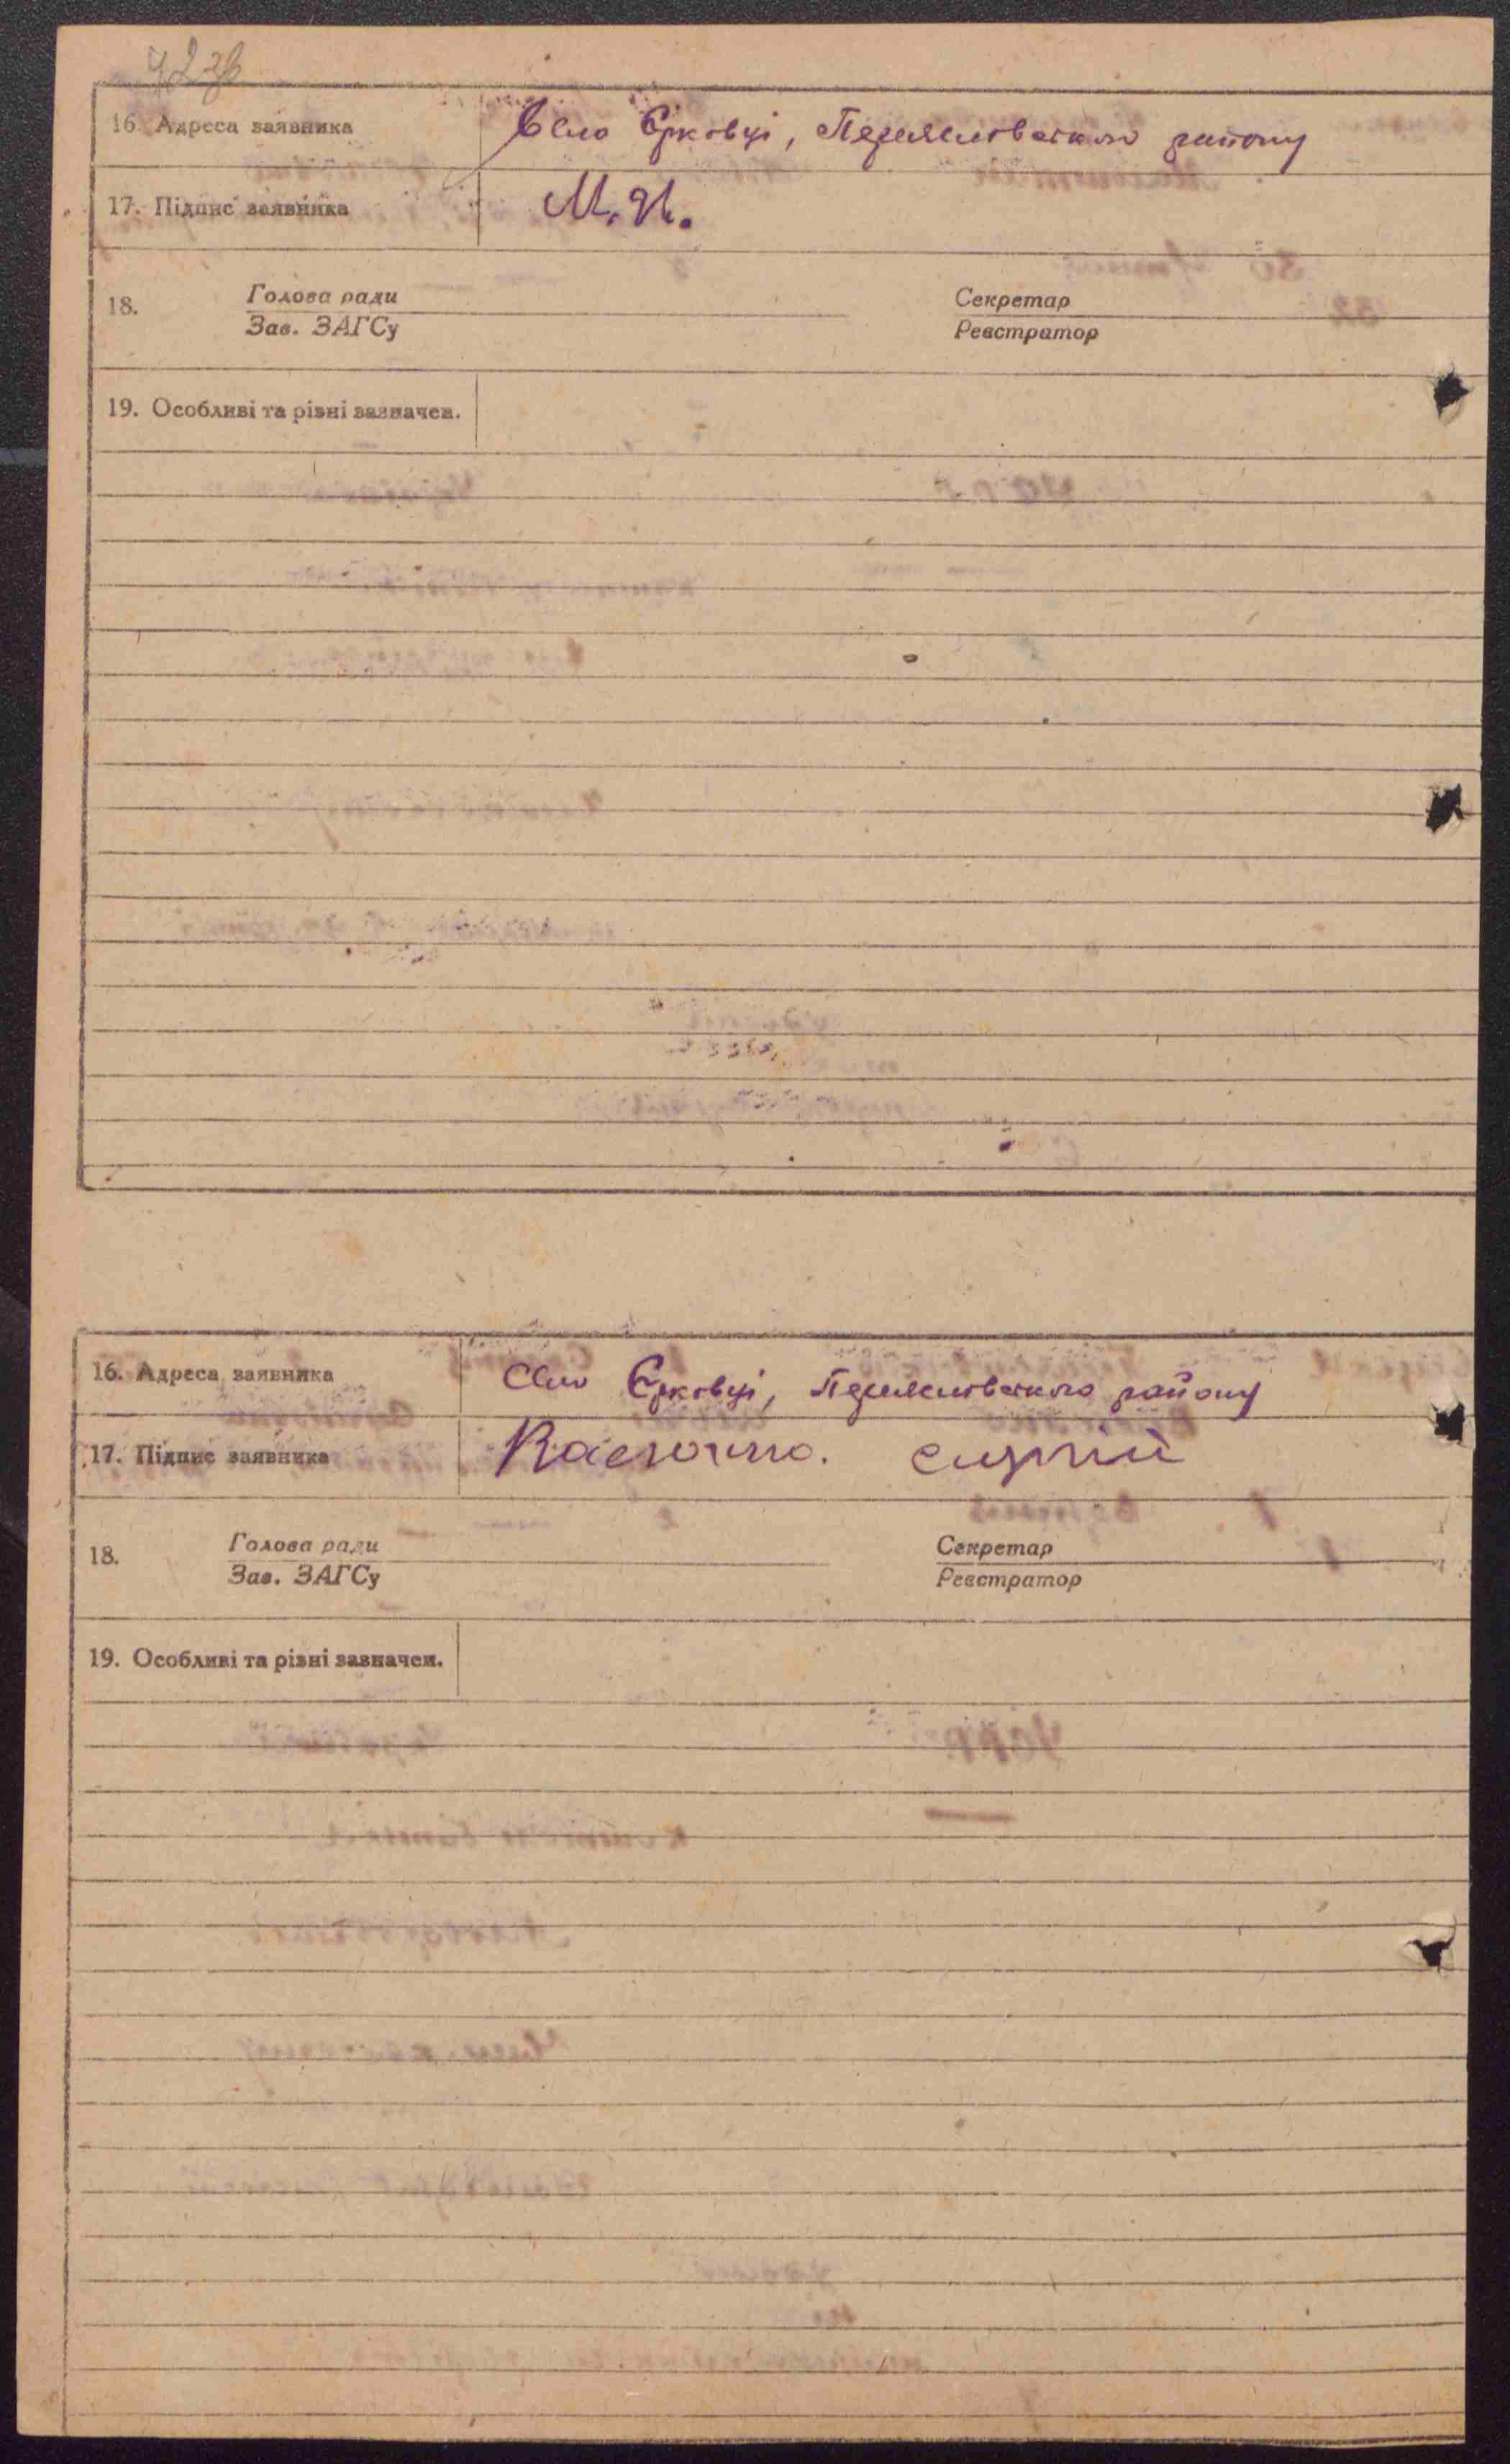 42зв
16. Адреса заявника Село Єрковці, Переяславського району
17. Підпис заявника М. Я.
18. Голова ради Секретар
Зав. ЗАГСу Реєстратор
19. Особливі та різні зазначен.
16. Адреса заявника Село Єрковці, Переяславського району
17. Підпис заявника
18. Голова ради Секретар
Зав. ЗАГСу Реєстратор
19. Особливі та різні зазначен.